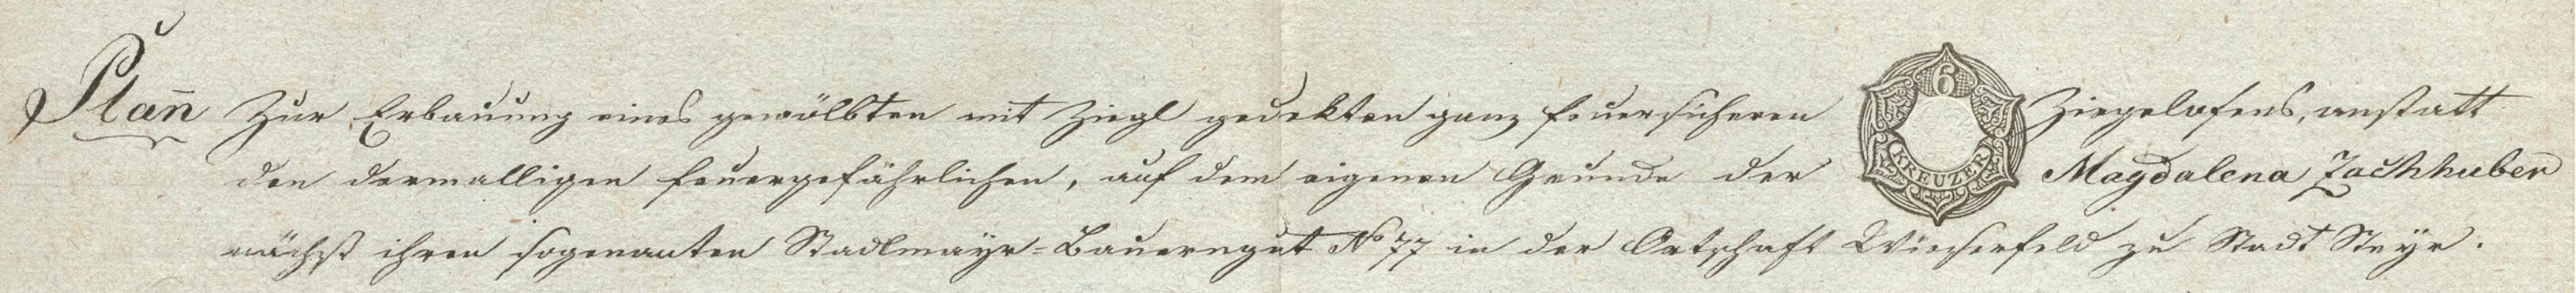 Plan̄ Zur Erbauung eines gewölbten mit Ziegl gedekten ganz feuersicheren Ziegelofens, anstatt
den dermalligen feuergefährlichen, auf dem eigenen Grunde der Magdalena Zachhuber
nächst ihren sogenanten Stadlmayr-Bauerngut No 77 in der Ortschaft Wieserfeld zu Stadt Steyr.
6
KREUZER